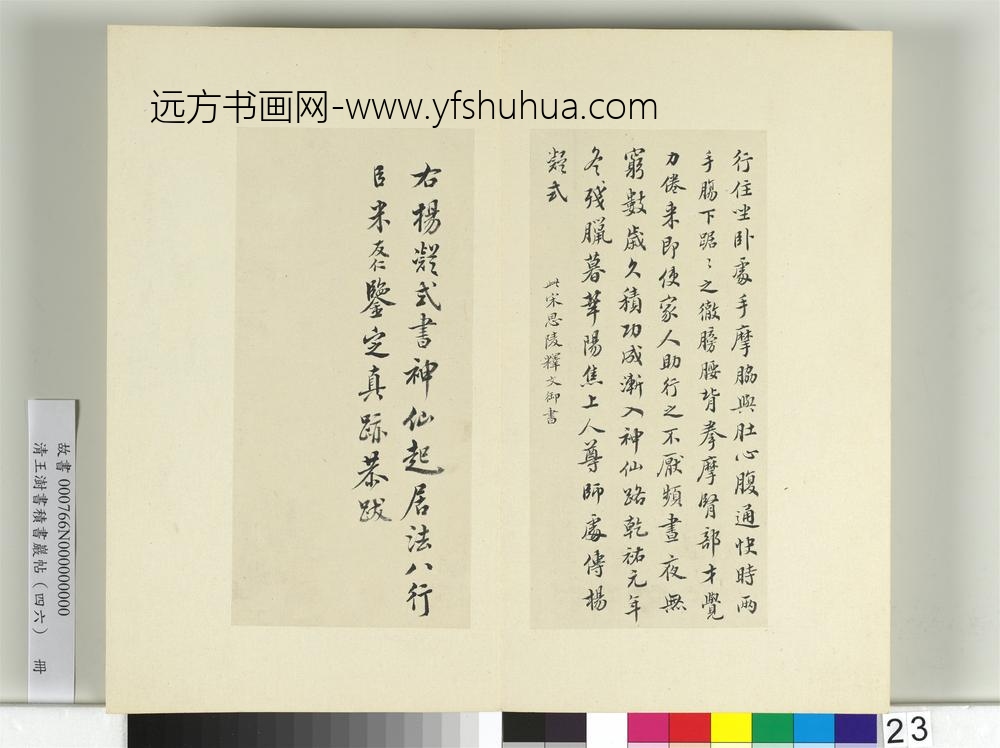 远方书画网-www.yfshuhua.com
行住坐卧處手摩脇與肚心腹通快時兩
手腸下踞〻之徹膀腰背拳摩腎部才覺
力倦来即使家人助行之不厭頻晝夜無
窮數歲久積功成漸入神仙路乾祐元年
冬殘臘暮華陽焦上人尊師處傳楊
凝式
此宋思陵釋文御書
右楊凝式書神仙起居法八行
臣米友仁鑒定真跡恭跋
故書 000766N000000000
清王澍書積書巖帖（四六） 冊
23